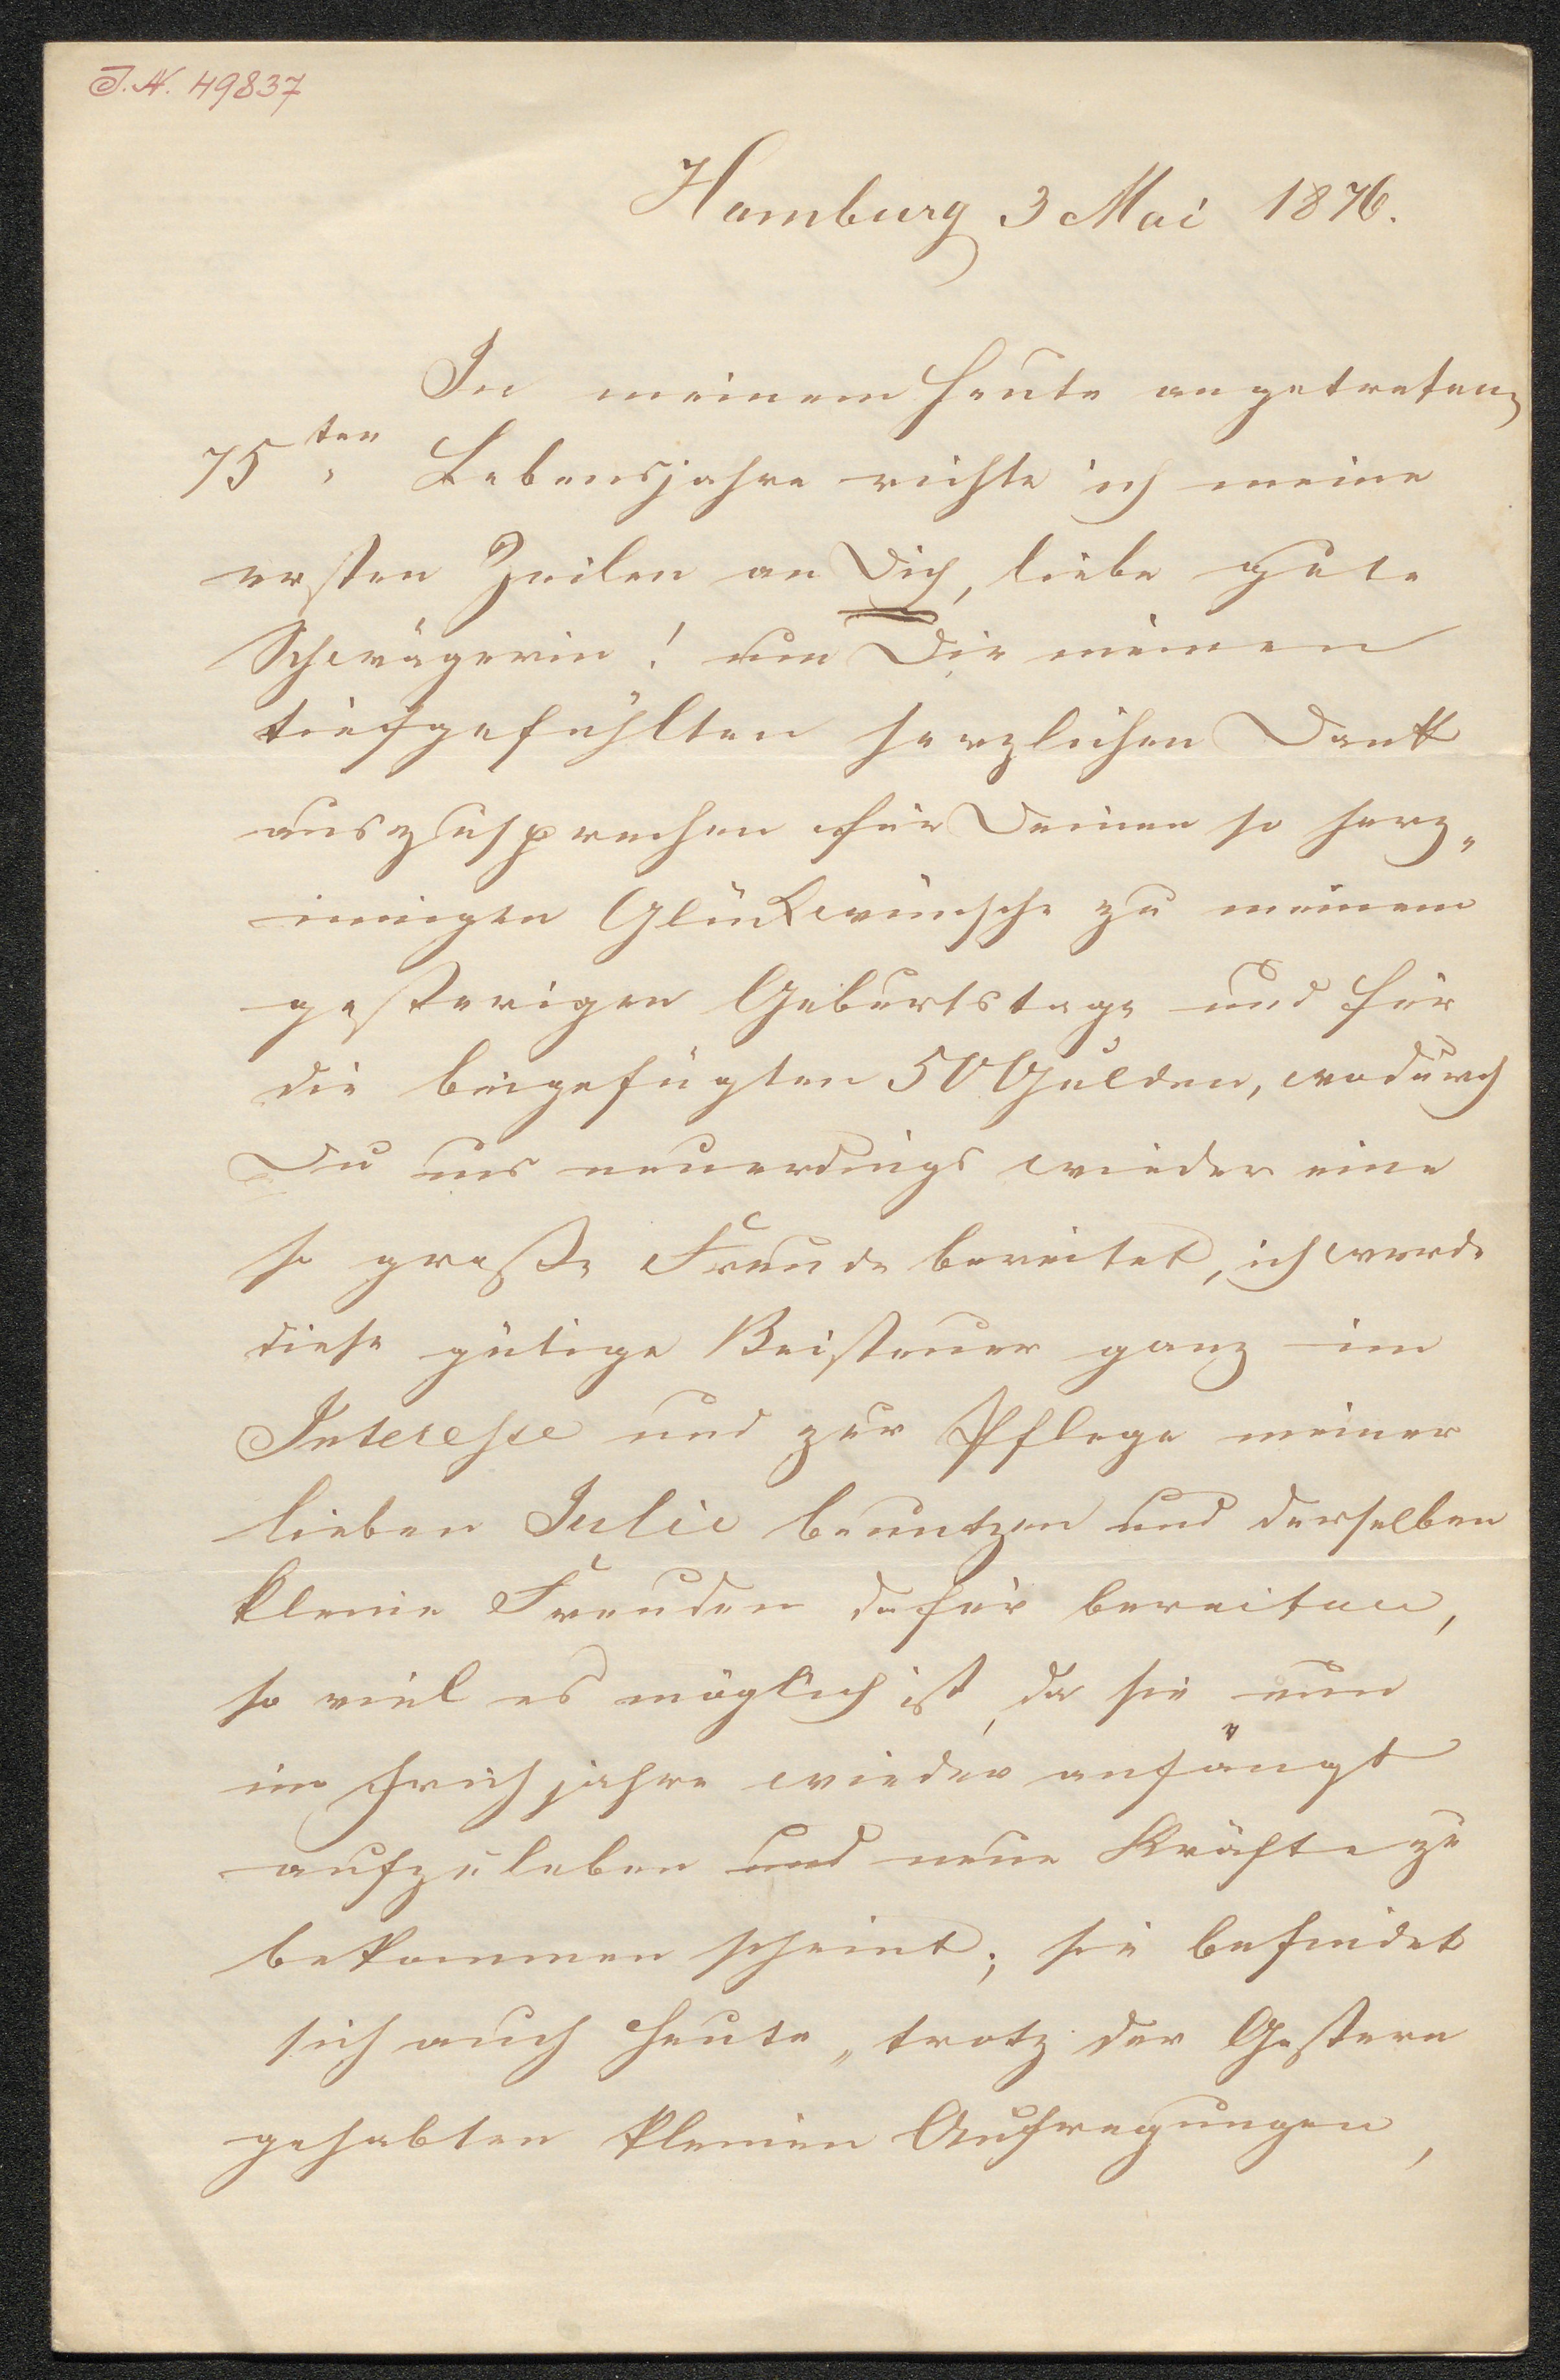 J. N. 49837
Hamburg 3 Mai 1876.
In meinem heute angetreten
75ten Lebensjahre richte ich meine
ersten Zeilen an Dich, liebe gute
Schwägerin! um Dir meinen
tiefgefühlten herzlichen Dank
auszusprechen für Deinen so herz„
innigen Glückwünsche zu meinem
gesterigen Geburtstage und für
die beigefügten 50 Gulden, wodurch
Du uns neuerdings wieder eine
so große Freude bereitet, ich werde
diese gütige Beisteuer ganz im
Interesse und zur Pflege meiner
lieben Julie benutzen und derselben
kleine Freuden dafür bereiten,
so viel es möglich ist, da sie nun
im Frühjahre wieder anfängt
aufzuleben und neue Kräfte zu
bekommen scheint; sie befindet
sich auch heute, trotz der Gestern
gehabten kleinen Aufregungen,